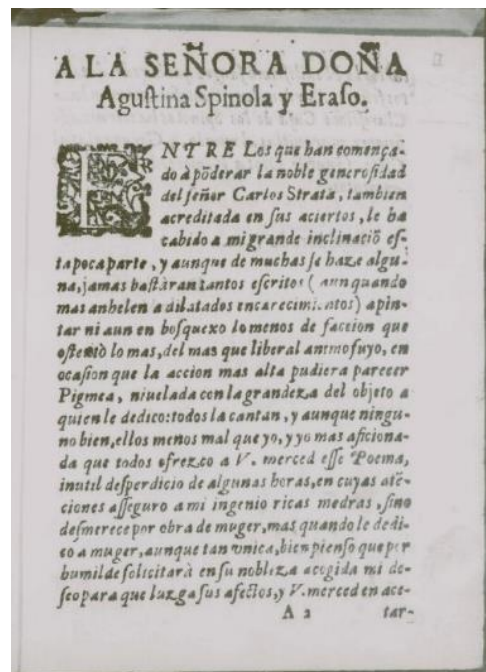 A LA SEÑORA DOÑA
Aguſtina Spinola y Eraſo.
ENTRE Los que han comença-
do à põderar la noble generoſidad
del ſeñor Carlos Strata, tambien
acreditada en ſus aciertos, le ha
cabido a mi grande inclinaciõ eſ-
ta poca parte, y aunque de muchas ſe haze algu-
na, jamas baſtàran tantos eſcritos (aun quando
mas anhelen a dilatados encarecimientos) a pin-
tar ni aun en boſquexo lo menos de faccion que
oſtentò lo mas, del mas que liberal animo ſuyo, en
ocaſion que la accion mas alta pudiera parecer
Pigmea, niuelada con la grandeza del objeto a
quien le dedico: todos la cantan, y aunque ningu-
no bien, ellos menos mal que yo, y yo mas aficiona-
da que todos ofrezco a V. merced eſſe Poema,
inutil deſperdicio de algunas horas, en cuyas atẽ-
ciones aſſeguro a mi ingenio ricas medras, ſino
deſmerece por obra de muger, mas quando le dedi-
co a muger, aunque tan vnica, bien pienſo que por
humilde ſolicitarà en ſu nobleza acogida mi de-
ſeo para que luzga ſus afectos, y V. merced en ace-
A 2 tar-